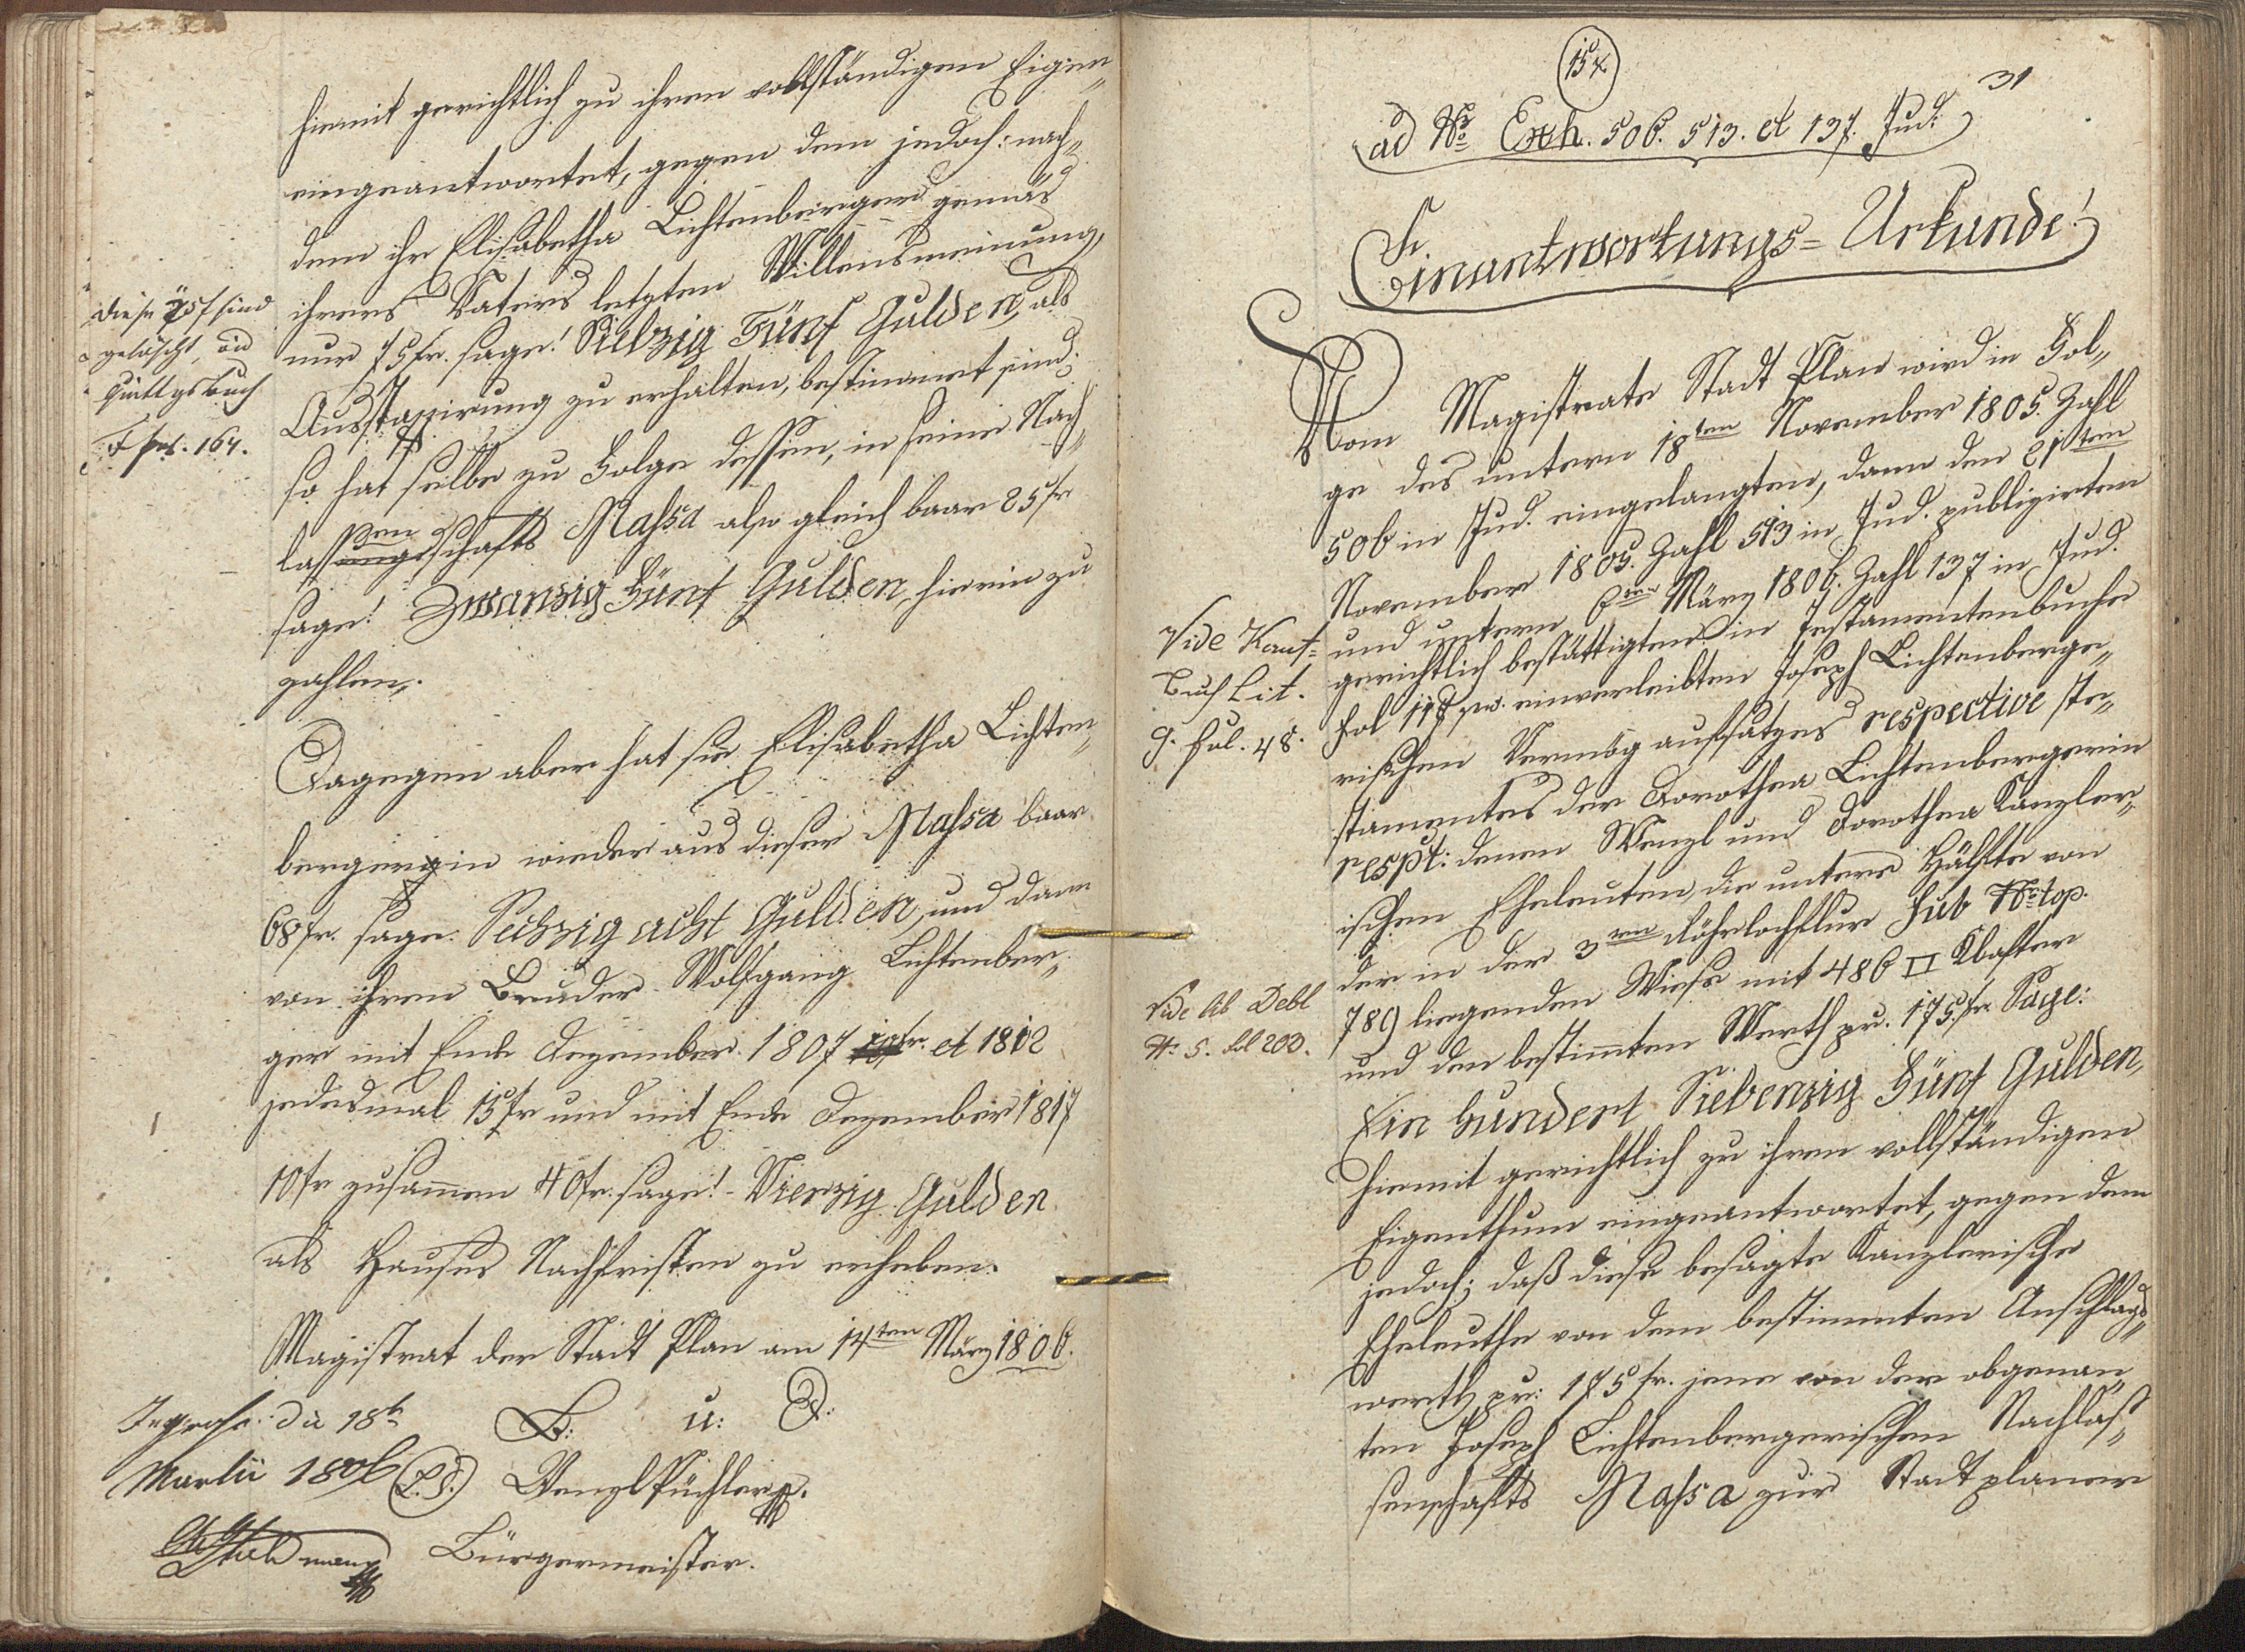 hiemit gerichtlich zu ihren vollständigen Eigen„
eingeantwortet, gegen dem jedoch: nach„
dem ihr Elisabetha Lichtenberger gemäs
ihrers Vaters letzten Willensmeinung,
nur 75 fr. sage! Siebzig Fünf Gulden, als
Ausstapirung zu erhalten, bestimmet sind;
so hat selbe zu Folge dessen, in seine Nach„
lassenschafts Massa also gleich baar 25 fr
sage! Zwanzig Fünf Gulden hierin zu
zahlen,.
Dagegen aber hat sie Elisabetha Lichten„
bergerin wieder aus dieser Massa baar
68 fr. sage. Sechzig acht Gulden, und dann
von ihren Bruder Wolfgang Lichtenber„
ger mit Ende Dezember 1807 et 1812
jedesmal 15 fr und mit Ende Dezember 1817
10 fr zusamen 40 fr. sage! Vierzig Gulden
als Hauses Nachfristen zu erheben.
Magistrat der Stadt Plan am 14ten März 1806.
B: u: D:
(L.S.) Wenzl Püchler
Bürgermeister.
diese 75 f sind
gelöscht, vid
Quittgsbuch
F fol. 164.
Ingross: die 18t
Martii 1806
15 x
31
ad No Exh. 506. 513. et 137. Jud:
Einantwortungs= Urkunde!
Vom Magistrate Stadt Plan wird in Fol„
ge des untern 18ten November 1805. Zahl
506 in Jud. eingelangten, dann den 21ten
November 1805. Zahl 513 in Jud. publizirten
und untern März 1806. Zahl 137 in Jud.
gerichtlich bestättigten in Testamentenbuche
Fol 118 einverleibten Joseph Lichtenberge„
rischen Vermög aufsatzes respective te„
stamentes der Dorothea Lichtenbergerin
respt: denen Wenzl und Dorothea Kanzler„
ischen Eheleuten, die untere Hälfte von
der in der 3ten Röhrlochflur sub No top.
789 liegenden Wiese mit 486 □ Klafter
und den bestimten Werth pr. 175. fr. Sage:
Ein hundert Siebenzig Fünf Gulden,
hiemit gerichtlich zu ihren vollständigen
Eigenthum eingeantwortet, gegen dem
jedoch; daß diese besagte Kanzlerische
Eheleuthe von dem bestimmten Anschlags„
werth pr: 175 fr. jene von der obgenan„
ten Joseph Lichtenbergerischen Nachlas„
senschafts Massa zur Stadt planer
Vide Kauf=
Buch Lit.
G. fol. 48.
Vide Ab Debl
N. 5. fol 203.